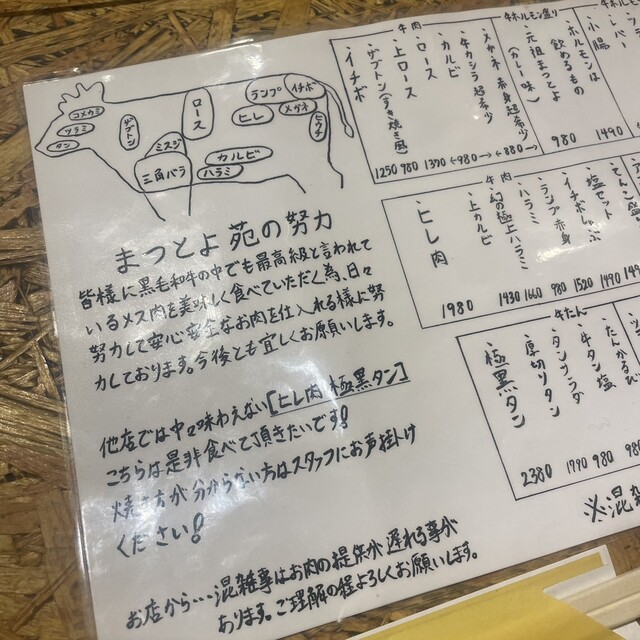 コメカミ
ツラミ
タン
ザブトン
ロース
ミスジ
三角バラ
カルビ
ハラミ
ヒレ
ランプ
イチボ
メガネ
まつとよ苑の努力
皆様に黒毛和牛の中でも最高級と言われて
いるメス肉を美味しく食べていただく為、日々
努力して安心安全なお肉を仕入れる様に努
力しております。今後とも宜しくお願いします。
他店では中々味わえない[ヒレ肉 極黒タン]
こちらは是非食べて頂きたいです!
焼き方が分からない方はスタッフにお声掛け
ください!
お店から…混雑事はお肉の提供が遅れる事が
あります。ご理解の程よろしくお願いします。
牛肉
カルビ
ロース
上ロース
ザブトン(すき焼き風)
イチボ
1250 980 1390 ←980→ ←880→
牛ホルモン盛り
ホルモンは
飲めるもの
元祖まつとよ
(カレー味)
980
小腸
1490
牛肉
塩ザブトン
イチボしゃぶ
ランプ赤身
ハラミ
幻の極上ハラミ
上カルビ
ヒレ肉
1980
1430 1660 980 1520 1490
牛たん
牛タン塩
タンサラダ
厚切りタン
極黒タン
2380
1990 980
※混